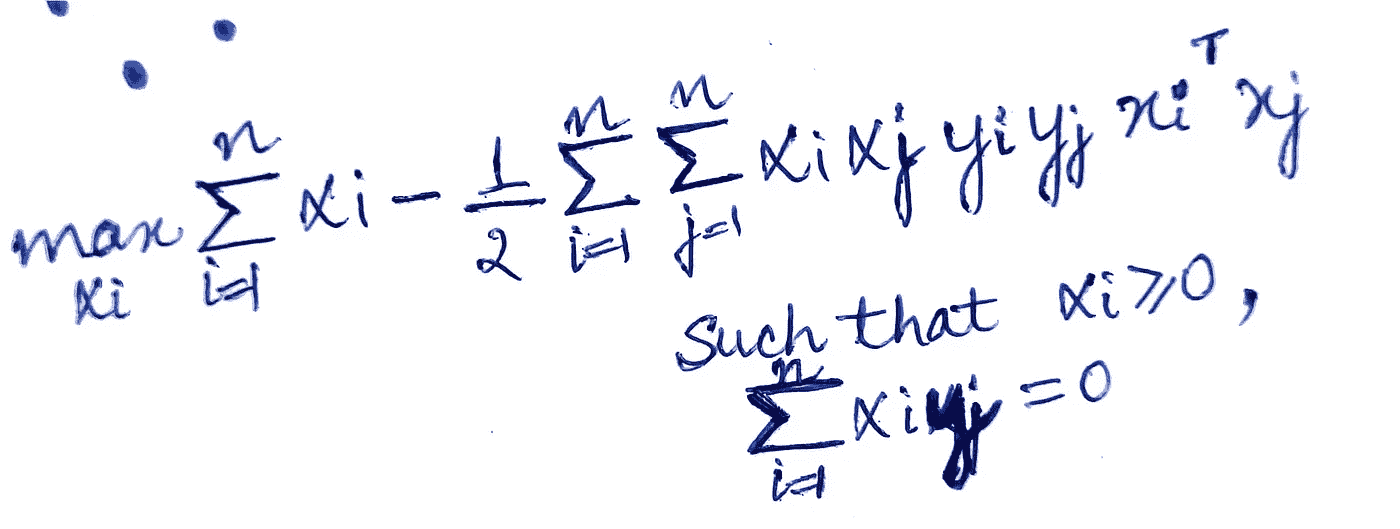 max_{αi} ∑_{i=1}^{n} αi - 1/2 ∑_{i=1}^{n} ∑_{j=1}^{n} αi αj yi yj xi^T xj
Such that αi ⩾ 0 ,
∑_{i=1}^{n} αi yj = 0